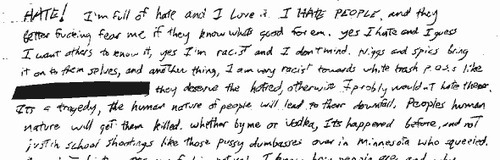 HATE! I'm full of hate and I love it. I HATE PEOPLE. and they
better fucking fear me if they know whats good for em. yes I hate and I guess
I want others to know it, yes I'm racist and I don't mind. Niggs and spics bring
it on to them selves, and another thing, I am very racist towards white trash P.O.S.s like
they deserve the hatred, otherwise I probly wouldn't hate them.
Its a tragedy, the human nature of people will lead to their downfall. Peoples human
nature will get them killed. whether by me or Vodka, Its happened before, and not
just in school shootings like those pussy dumbasses over in Minnesota who squeeled.